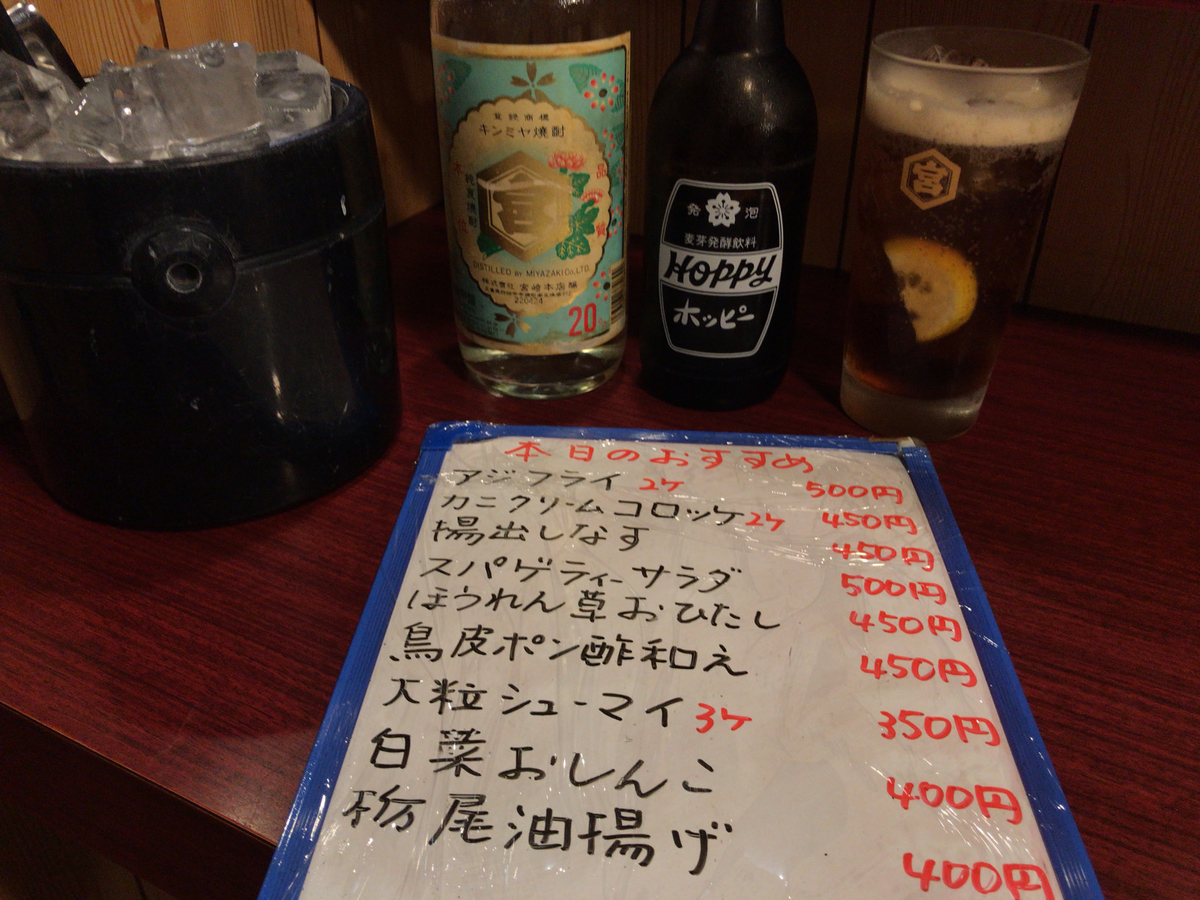 登録商標
キンミヤ焼酎
宮
品質
DISTILLED BY MIYAZAKI CO., LTD.
株式会社 宮崎本店醸
220424
20
発泡
麦芽発酵飲料
HOPPY
ホッピー
宮
本日のおすすめ
アジフライ 2ケ 500円
カニクリームコロッケ 2ケ 450円
揚出しなす 450円
スパゲティーサラダ 500円
ほうれん草おひたし 450円
鳥皮ポン酢和え 450円
大粒シューマイ 3ケ 350円
白菜おしんこ 400円
栃尾油揚げ 400円